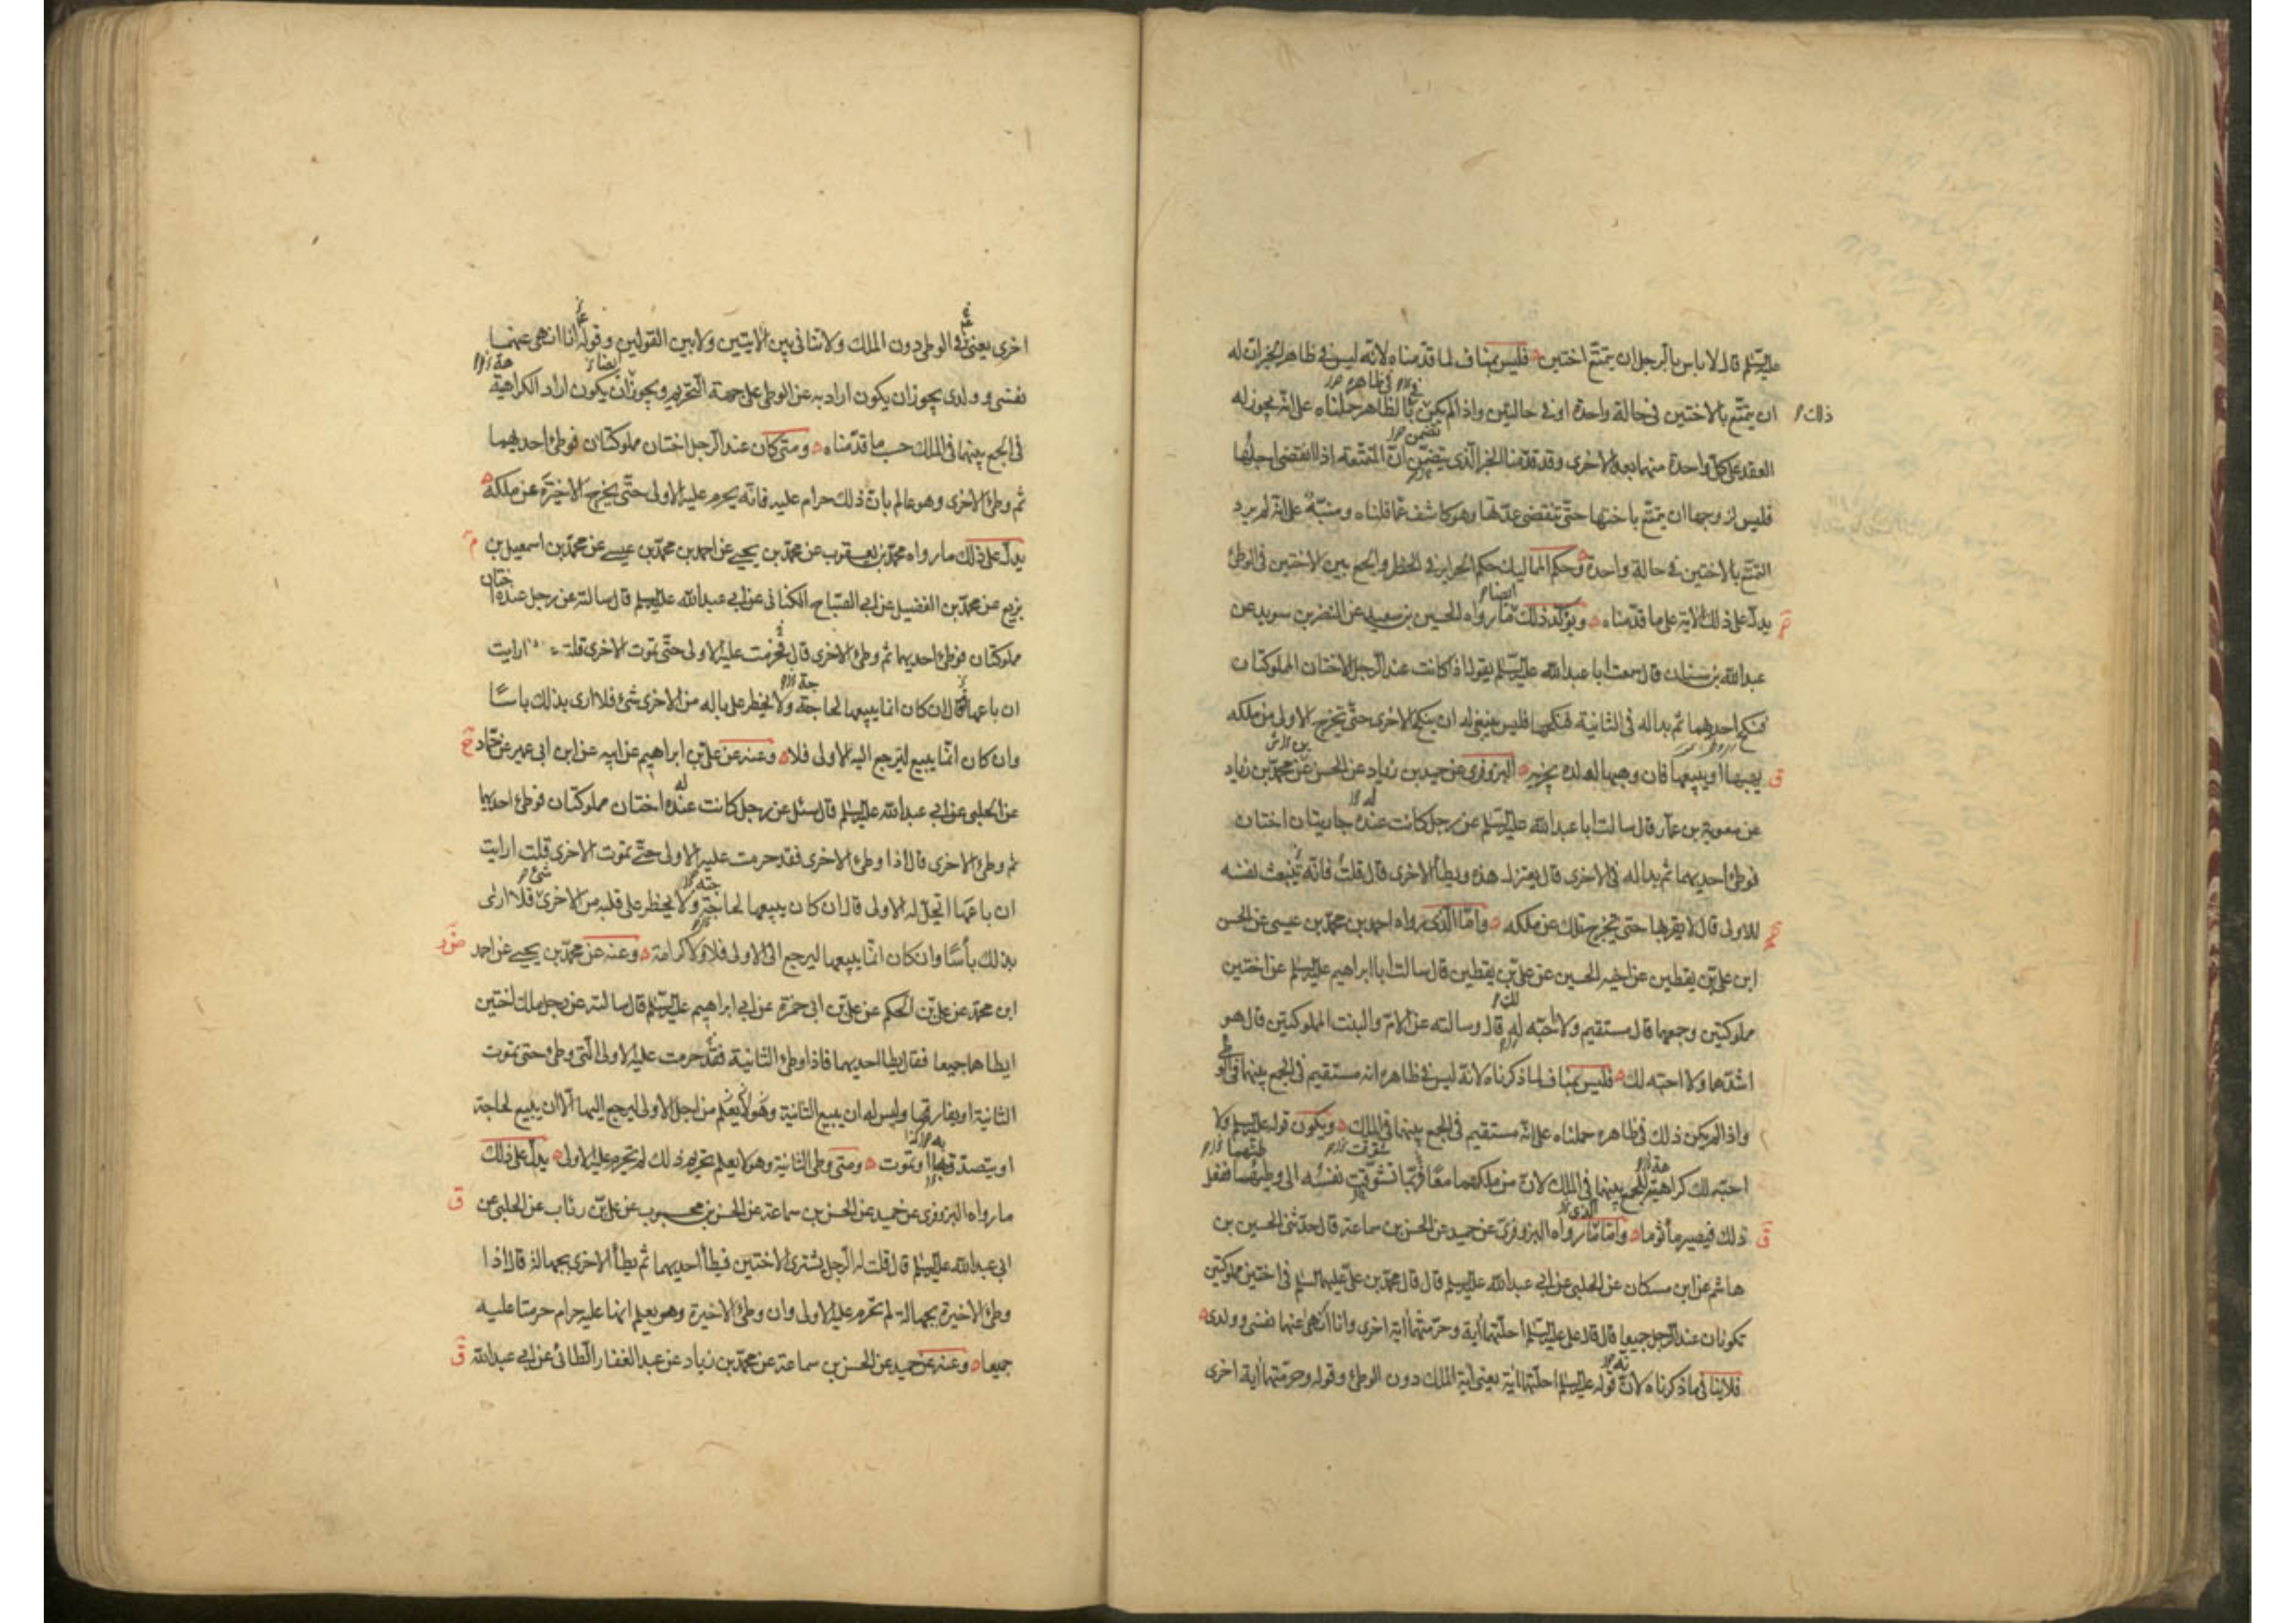 عليه السلام قال لا باس بالرجل ان يتمتع اختين فليس بمناف لما قدمناه لانه ليس في ظاهر الخبر ان له
ذلك
ان يتمتع بالاختين في حالة واحدة او في حالتين واذا لم يكن بالظاهر حملناه على انه يجوز له
العقد على كل واحدة منهما بعد الاخرى وقد قدمنا الخبر الذي يتضمن ان المتمتعة اذا انقضى اجلها
فليس لزوجها ان يتمتع باختها حتى تنقضى عدتها وهو كاشف عما قلناه ومنبه على انه لم يرد
التمتع بالاختين في حالة واحدة وحكم المماليك حكم الحراير في الحظر والجمع بين الاختين في الوطئ
يدل على ذلك الاية على ما قدمناه ويؤكد ذلك ما رواه الحسين بن سعيد عن النضر بن سويد عن
عبد الله بن سنان قال سمعت ابا عبد الله عليه السلام يقول اذا كانت عند الرجل الاختان المملوكتان
فنكح احديهما ثم بدا له في الثانية فنكحها فليس ينبغي له ان ينكح الاخرى حتى تخرج الاولى من ملكه
يهبها او يبيعها فان وهبها لولده يجزيه البزوفرى عن حميد بن زياد عن الحسن عن محمد بن زياد
عن معوية بن عمار قال سالت ابا عبد الله عليه السلام عن رجل كانت عنده جاريتان اختان
فوطئ احديهما ثم بدا له في الاخرى قال يعتزل هذه ويطأ الاخرى قال قلت فانه تنبعث نفسه
للاولى قال لا يقربها حتى يخرج تلك عن ملكه واما الذى رواه احمد بن محمد بن عيسى عن الحسن
ابن علي بن يقطين عن اخيه الحسين عن علي بن يقطين قال سالت ابا ابراهيم عليه السلام عن اختين
مملوكتين وجمعهما قال مستقيم ولا احبه له قال وسالته عن الام والبنت المملوكتين قال هو
اشدهما ولا احبه لك فليس بمناف لما ذكرناه لانه ليس في ظاهره انه مستقيم في الجمع بينهما في الوطئ
واذا لم يكن ذلك في ظاهره حملناه على انه مستقيم في الجمع بينهما في الملك ويكون قوله عليه السلم ولا
احبه لك كراهية للجمع بينهما في الملك لان من ملكهما معا فربما تشوقت نفسه الى وطيهما ففعل
ذلك فيصير مأثوما واما ما رواه البزوفرى عن حميد عن الحسن بن سماعة قال حدثنى الحسين بن
هاشم عن ابن مسكان عن الحلبى عن ابى عبد الله عليه السلم قال قال محمد بن على عليهما السلم في اختين مملوكتين
تكونان عند الرجل جميعا قال قال على عليه السلم احلتهما اية وحرمتهما اية اخرى وانا انهى عنهما نفسى وولدى
فلا ينافى ما ذكرناه لان قوله عليه السلم احلتهما اية يعنى اية الملك دون الوطئ وقوله وحرمتهما اية اخرى
اخرى يعنى في الوطى دون الملك ولا تنافى بين الايتين ولا بين القولين وقوله انا انهى عنهما
نفسى وولدى يجوز ان يكون اراد به عن الوطى على جهة التحريم ويجوز ان يكون اراد الكراهية
في الجمع بينهما في الملك حسب ما قدمناه ومتى كان عند الرجل اختان مملوكتان فوطئ احديهما
ثم وطئ الاخرى وهو عالم بان ذلك حرام عليه فانه يحرم عليه الاولى حتى يخرج الاخيرة عن ملكه
يدل على ذلك ما رواه محمد بن يعقوب عن محمد بن يحيى عن احمد بن محمد بن عيسى عن محمد بن اسمعيل بن
بزيع عن محمد بن الفضيل عن ابى الصباح الكنانى عن ابى عبد الله عليه السلم قال سالته عن رجل عنده اختان
مملوكتان فوطئ احديهما ثم وطئ الاخرى قال حرمت عليه الاولى حتى تموت الاخرى قلت ارايت
ان باعها قال ان كان انما يبيعها لحاجة ولا يخطر على باله من الاخرى شئ فلا ارى بذلك باسا
وان كان انما يبيع ليرجع اليه الاولى فلا وعنه عن على بن ابراهيم عن ابيه عن ابن ابى عمير عن حماد
عن الحلبى عن ابى عبد الله عليه السلم قال سئل عن رجل كانت عنده اختان مملوكتان فوطئ احديهما
ثم وطئ الاخرى قال اذا وطئ الاخرى فقد حرمت عليه الاولى حتى تموت الاخرى قلت ارايت
ان باعها اتحل له الاولى قال ان كان يبيعها لحاجة ولا يخطر على قلبه من الاخرى فلا ارى
بذلك بأسا وان كان انما يبيعها ليرجع الى الاولى فلا ولا كرامة وعنه عن محمد بن يحيى عن احمد
ابن محمد عن على بن الحكم عن على بن ابى حمزة عن ابى ابراهيم عليه السلم قال سالته عن رجل ملك اختين
ايطاهما جميعا فقال يطا احديهما فاذا وطئ الثانية فقد حرمت عليه الاولى التى وطئ حتى تموت
الثانية او يفارقها وليس له ان يبيع الثانية من اجل الاولى ليرجع اليها الا ان يبيع لحاجة
او يتصدق بها او تموت ومتى وطى الثانية وهو لا يعلم تحريم ذلك لم تحرم عليه الاولى يدل على ذلك
ما رواه البزوفرى عن حميد عن الحسن بن سماعة عن الحسن بن محبوب عن على بن رئاب عن الحلبى عن
ابى عبد الله عليه السلم قال قلت له الرجل يشترى الاختين فيطأ احديهما ثم يطأ الاخرى بجهالة قال اذا
وطئ الاخيرة بجهالة لم تحرم عليه الاولى وان وطئ الاخيرة وهو يعلم انها عليه حرام حرمتا عليه
جميعا وعنه عن حميد عن الحسن بن سماعة عن محمد بن زياد عن عبد الغفار الطائى عن ابى عبد الله